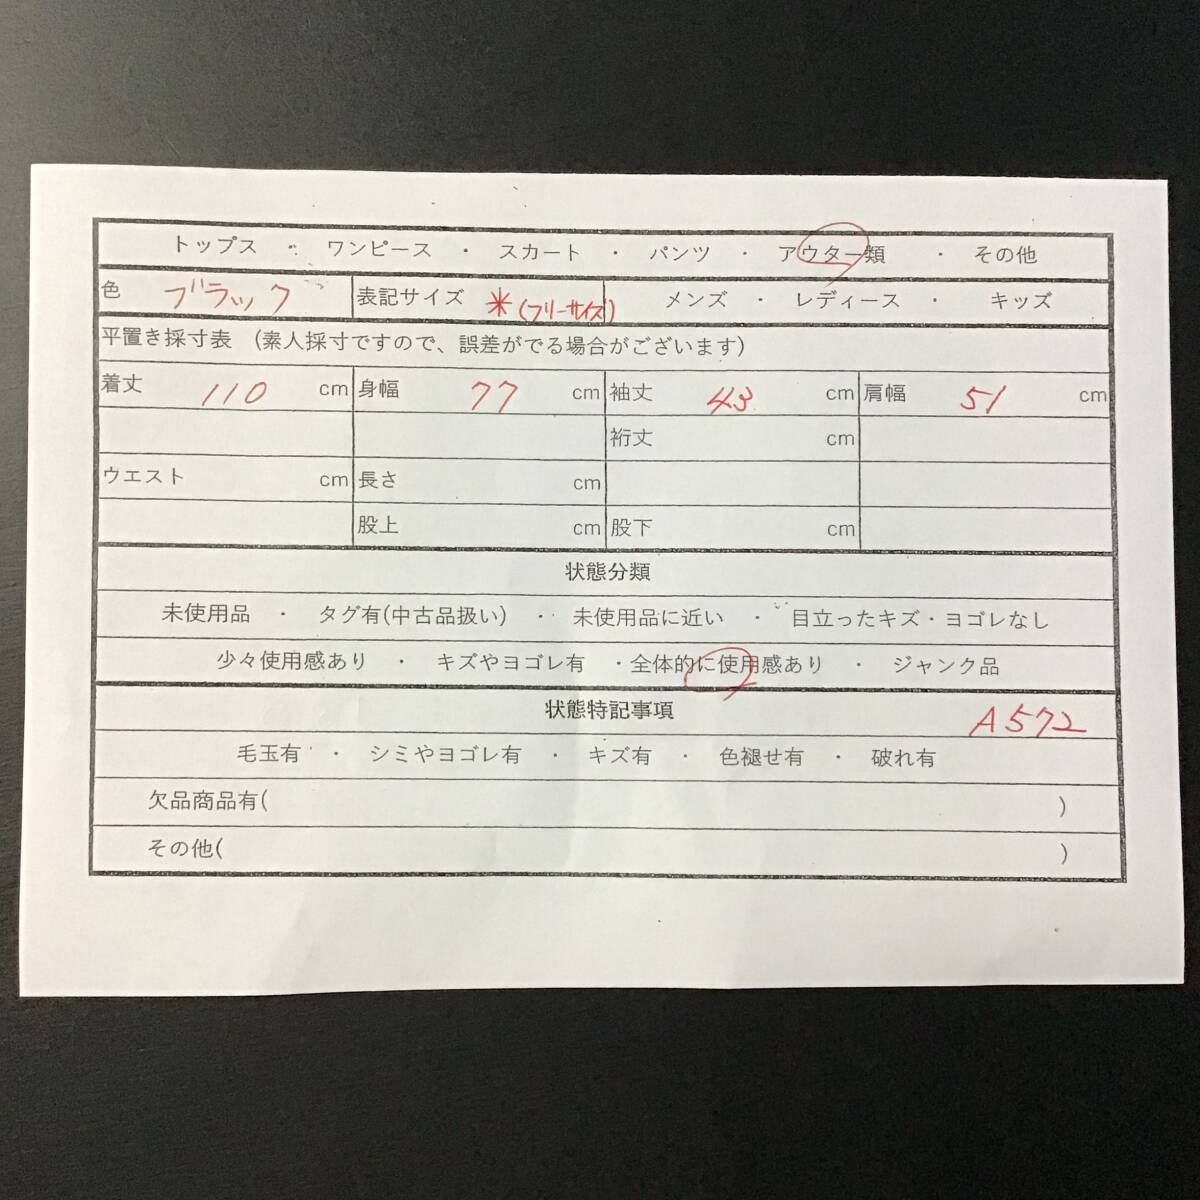 トップス ・ ワンピース ・ スカート ・ パンツ ・ アウター類 ・ その他
色 ブラック 表記サイズ ＊(フリーサイズ) メンズ ・ レディース ・ キッズ
平置き採寸表 (素人採寸ですので、誤差がでる場合がございます)
着丈 110 cm 身幅 77 cm 袖丈 43 cm 肩幅 51 cm
裄丈 cm
ウエスト cm 長さ cm
股上 cm 股下 cm
状態分類
未使用品 ・ タグ有(中古品扱い) ・ 未使用品に近い ・ 目立ったキズ・ヨゴレなし
少々使用感あり ・ キズやヨゴレ有 ・全体的に使用感あり ・ ジャンク品
状態特記事項 A572
毛玉有 ・ シミやヨゴレ有 ・ キズ有 ・ 色褪せ有 ・ 破れ有
欠品商品有( )
その他( )